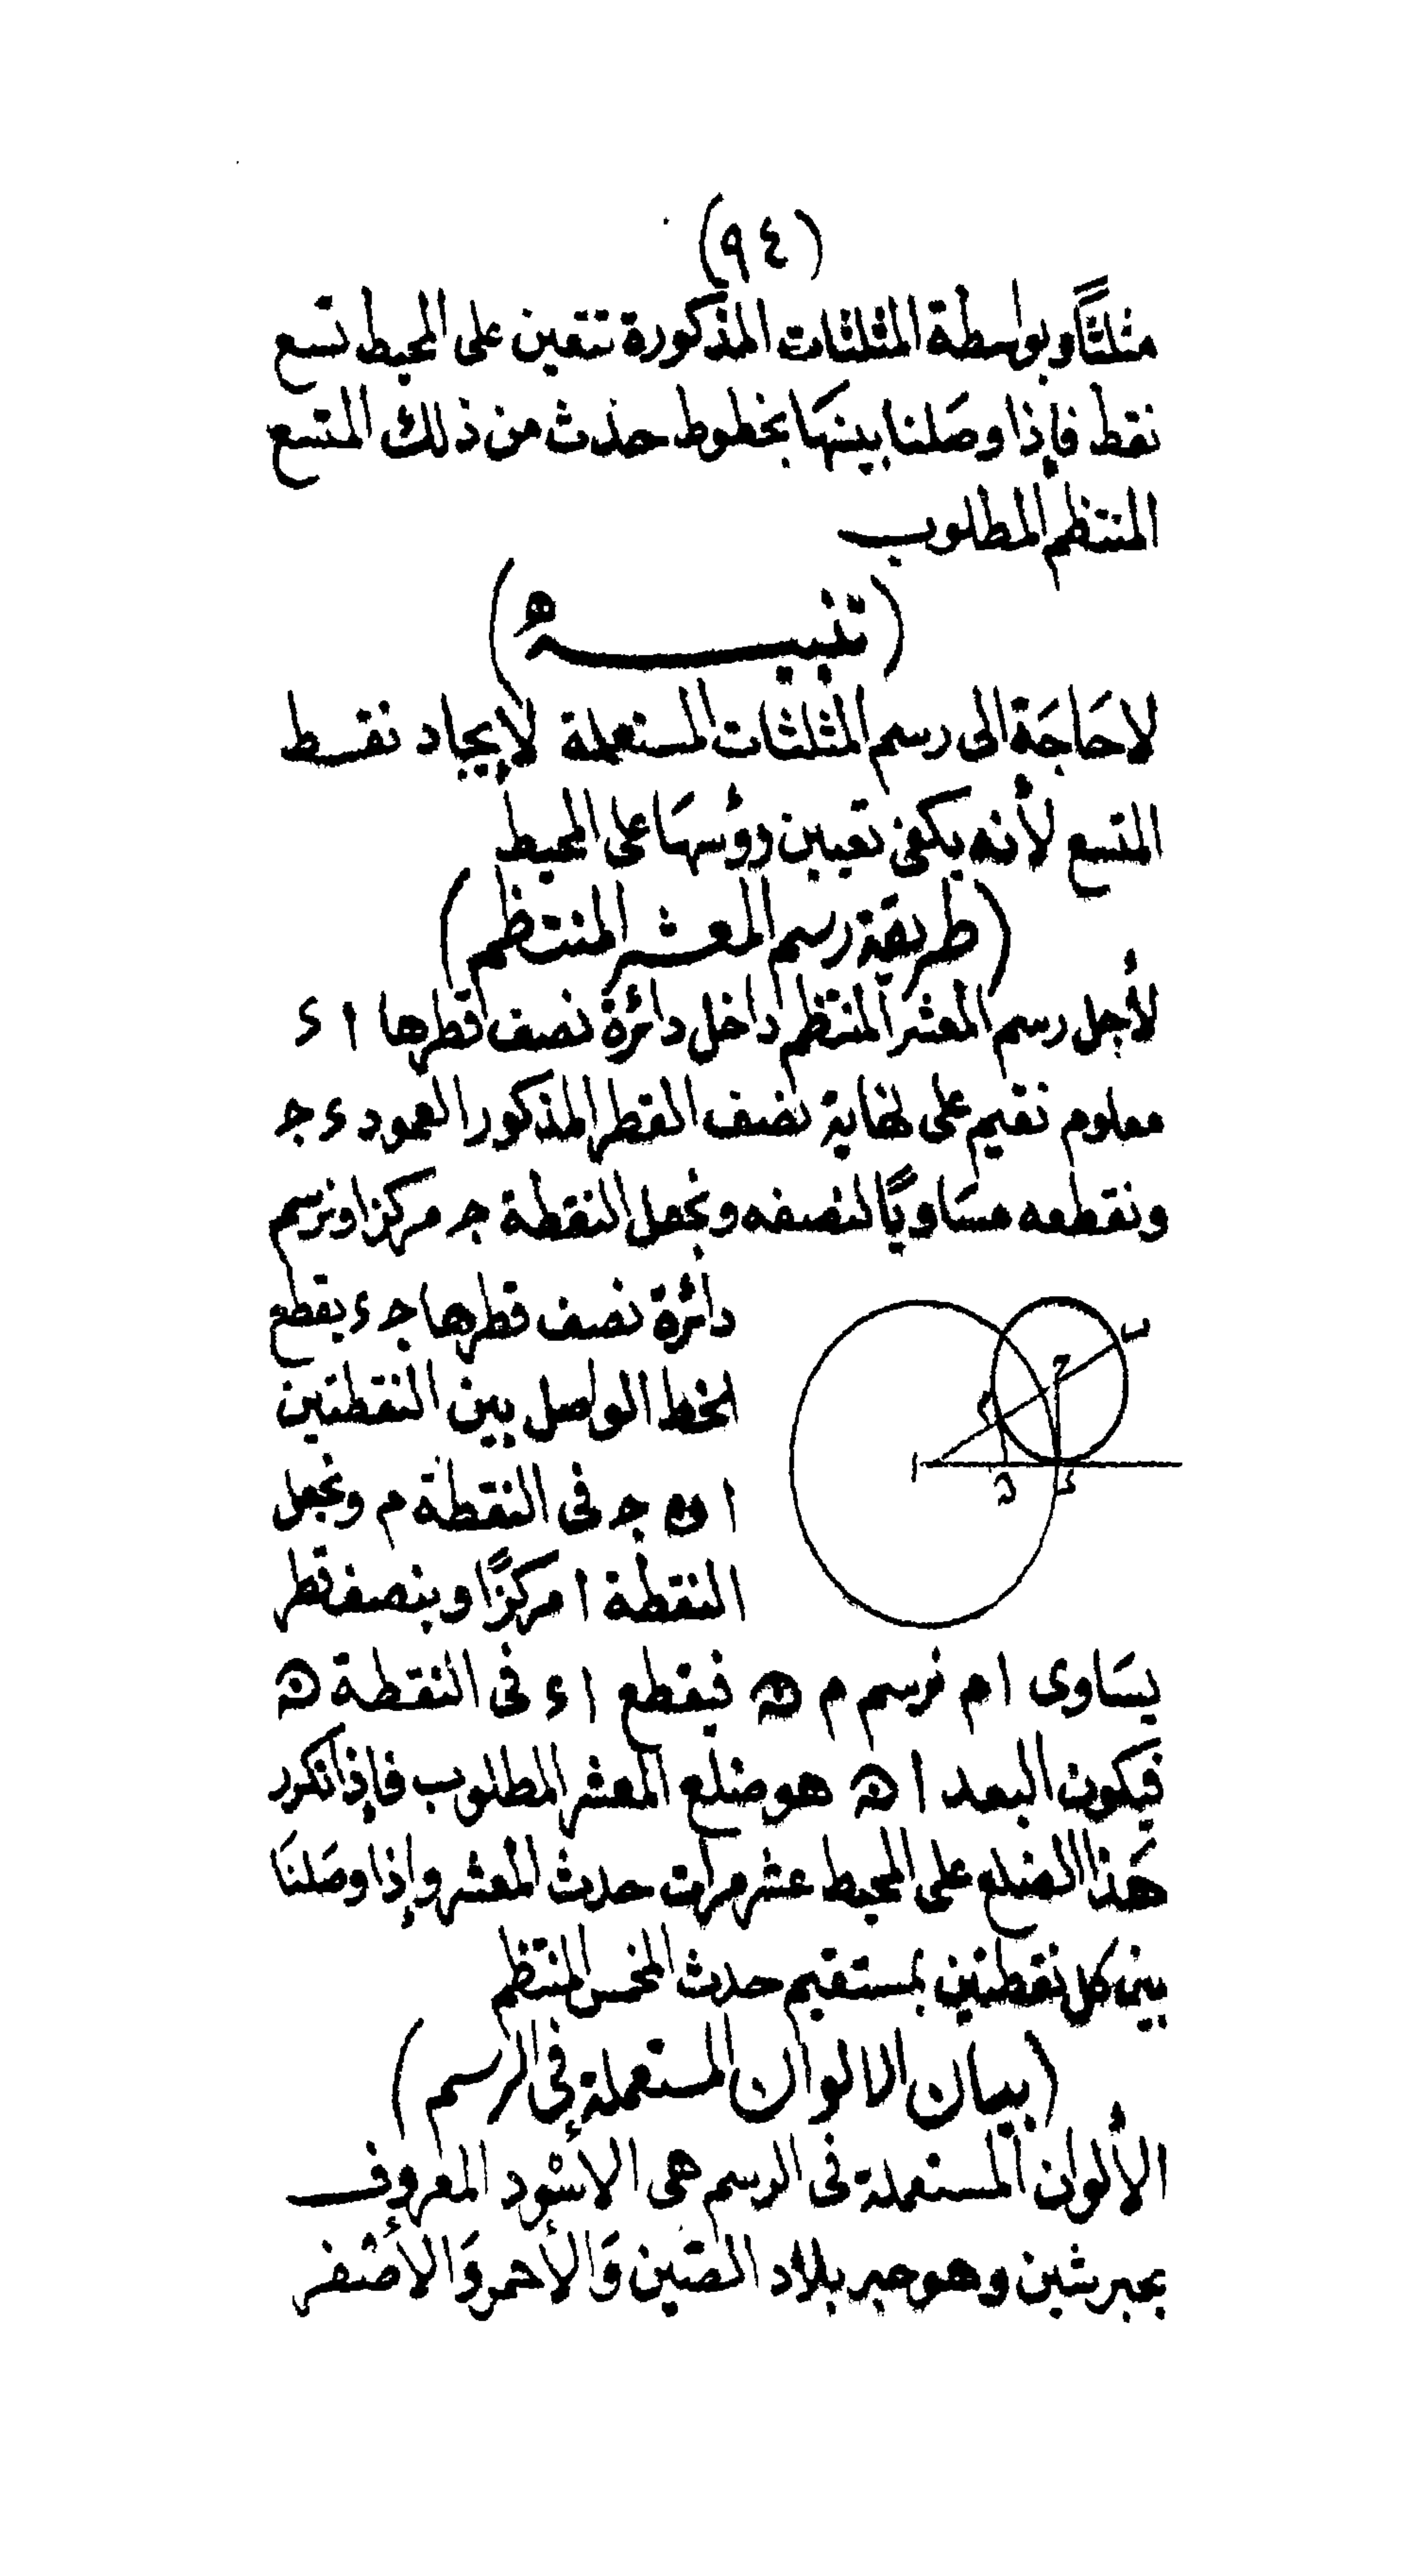 (٩٤)
مثلثًا وبواسطة المثلثات المذكورة تتعين على المحيط تسع
نقط فإذا وصَلنا بينهَا بخطوط حذث من ذلك المتسع
المنتظم المطلوب
(تنبيـــهُ)
لاحَاجَة الى رسم المثلثات المستعملة لإيجاد نقـط
المتسع لأنه يكفى تعيين رؤسهَا على المحيط
(طريقة رسم المعشر المنتظم)
لأجل رسم المعشر المنتظم داخل دائرة نصف قطرها ا ء
معلوم نقيم على نهاية نصف القطر المذكور العمود ء جـ
ونقطعه مسَاويًا لنصفه ونجعل النقطة جـ مركزا ونرسم
دائرة نصف قطرها جـ ء يقطع
الخط الواصل بين النقطتين
ا و جـ فى النقطة م ونجعل
النقطة ا مركزًا وبنصف قطر
ب
ج
م
ا
ن
ء
يسَاوى ا م نرسم م ن فيقطع ا ء فى النقطة ن
فيكون البعد ا ن هو ضلع المعشر المطلوب فإذا تكرر
هَذا الضلع على المحيط عشر مرات حدث المعشر وإذا وصَلنَا
بين كل نقطتين بمستقيم حدث المخمس المنتظم
(بيان الالوان المستعملة فى الرسم)
الألوان المستعملة فى الرسم هى الأسْود المعروف
بحبر شين وهو حبر بلاد الصّين وَالأحمر وَالأصْفر